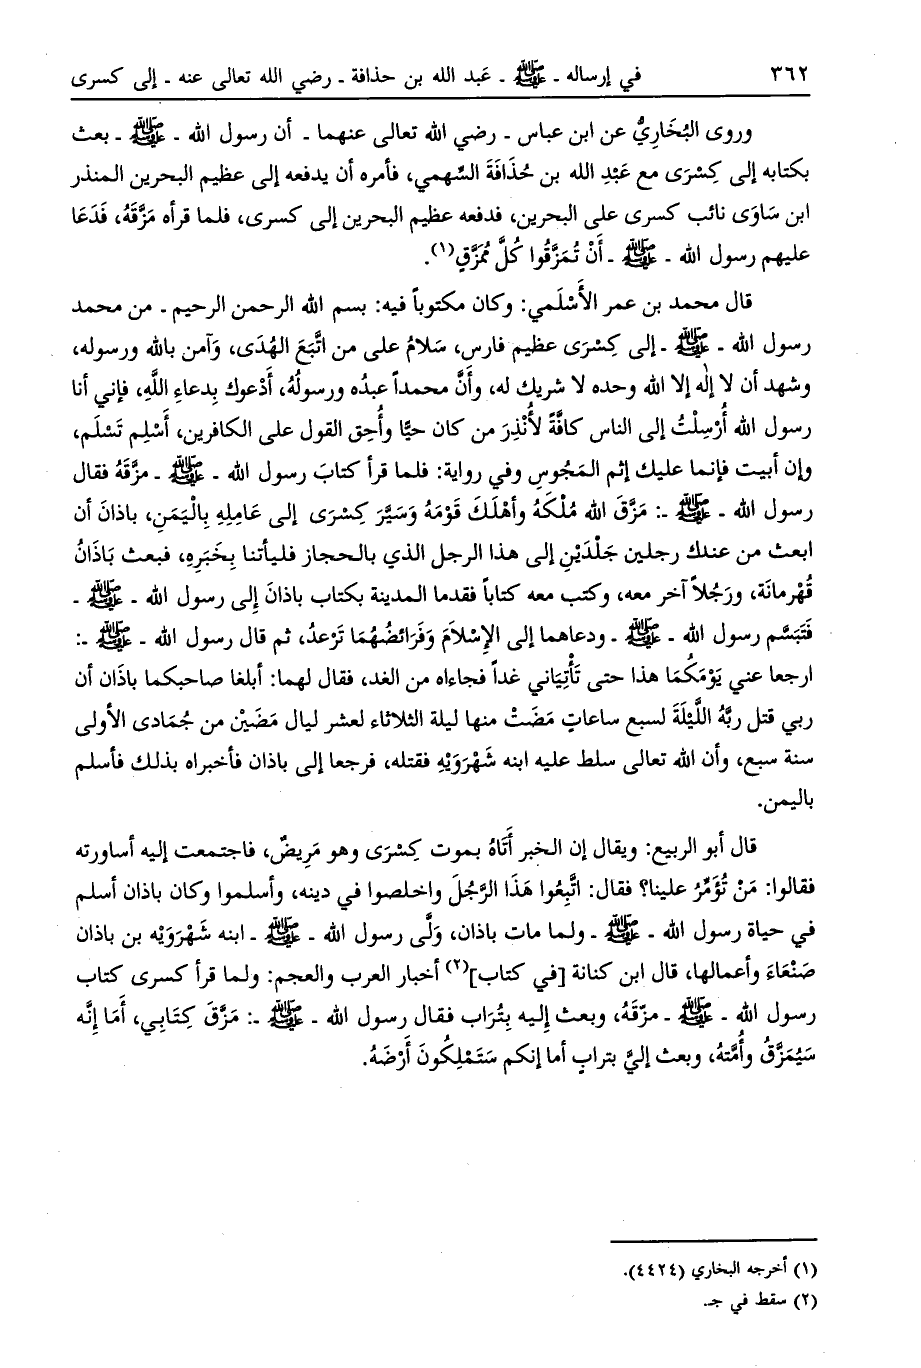 ٣٦٢ في إرساله ـ ﷺ ـ عَبد الله بن حذافة ـ رضي الله تعالى عنه ـ إلى كسرى
وروى البُخَارِيُّ عن ابن عباس ـ رضي الله تعالى عنهما ـ أن رسول الله ـ ﷺ ـ بعث
بكتابه إلى كِسْرَى مع عَبْدِ الله بن حُذَافَةَ السَّهمي، فأمره أن يدفعه إلى عظيم البحرين المنذر
ابن سَاوَى نائب كسرى على البحرين، فدفعه عظيم البحرين إلى كسرى، فلما قرأه مَزَّقَهُ، فَدَعَا
عليهم رسول الله ـ ﷺ ـ أَنْ تُمَزَّقُوا كُلَّ مُمَزَّقٍ(١).
قال محمد بن عمر الأَسْلَمي: وكان مكتوباً فيه: بسم الله الرحمن الرحيم ـ من محمد
رسول الله ـ ﷺ ـ إلى كِسْرَى عظيم فارس، سَلامُ على من اتَّبَعَ الهُدَى، وَآمن بالله ورسوله،
وشهد أن لا إلٰه إلا الله وحده لا شريك له، وأَنَّ محمداً عبدُه ورسولُهُ، أَدْعوك بِدعاءِ اللَّهِ، فإني أنا
رسول الله أُرْسِلْتُ إلى الناس كافَّةً لأُنْذِرَ من كان حيًّا وأُحِق القول على الكافرين، أَسْلِم تَسْلَم،
وإن أبيت فإنما عليك إثم المَجُوسِ وفي رواية: فلما قرأ كتابَ رسول الله ـ ﷺ ـ مزَّقَهُ فقال
رسول الله ـ ﷺ ـ: مَزَّقَ الله مُلْكَهُ وأَهْلَكَ قَوْمَهُ وَسَيَّرَ كِسْرَى إلى عَامِلِهِ بِالْيَمَنِ، باذانَ أن
ابعث من عندك رجلين جَلْدَيْنِ إلى هذا الرجل الذي بالحجاز فليأتنا بِخَبَرِهِ، فبعث بَاذَانُ
قُهْرمانَة، ورَجُلاً آخر معه، وكتب معه كتاباً فقدما المدينة بكتاب باذانَ إِلى رسول الله ـ ﷺ ـ
فَتَبَسَّم رسول الله ـ ﷺ ـ ودعاهما إلى الإِسْلاَمَ وَفَرَائضُهُمَا تَرْعدُ، ثم قال رسول الله ـ ﷺ ـ:
ارجعا عني يَوْمَكُمَا هذا حتى تَأْتِيَاني غداً فجاءاه من الغد، فقال لهما: أبلغا صاحبكما باذَان أن
ربي قتل ربَّهُ اللَّيْلَةَ لسبع ساعاتٍ مَضَتْ منها ليلة الثلاثاء لعشر ليال مَضَيْن من جُمَادى الأولى
سنة سبع، وأن الله تعالى سلط عليه ابنه شَهْرَوَيْهِ فقتله، فرجعا إلى باذان فأخبراه بذلك فأسلم
باليمن.
قال أبو الربيع: ويقال إن الخبر أَتَاهُ بموت كِسْرَى وهو مَرِيضٌ، فاجتمعت إليه أساورته
فقالوا: مَنْ تُؤَمِّرُ علينا؟ فقال: اتَّبِعُوا هَذَا الرَّجُلَ واخلصوا في دينه، وأسلموا وكان باذان أسلم
في حياة رسول الله ـ ﷺ ـ ولما مات باذان، وَلَّى رسول الله ـ ﷺ ـ ابنه شَهْرَوَيْه بن باذان
صَنْعَاءَ وأعمالها، قال ابن كنانة [في كتاب](٢) أخبار العرب والعجم: ولما قرأ كسرى كتاب
رسول الله ـ ﷺ ـ مزّقَهُ، وبعث إليه بِتُرَاب فقال رسول الله ـ ﷺ ـ: مَزَّقَ كِتَابِي، أَمَا إِنَّه
سَيُمَزَّقُ وأُمَّتهُ، وبعث إليَّ بترابٍ أما إنكم سَتَمْلِكُونَ أَرْضَهُ.
(١) أخرجه البخاري (٤٤٢٤).
(٢) سقط في جـ.